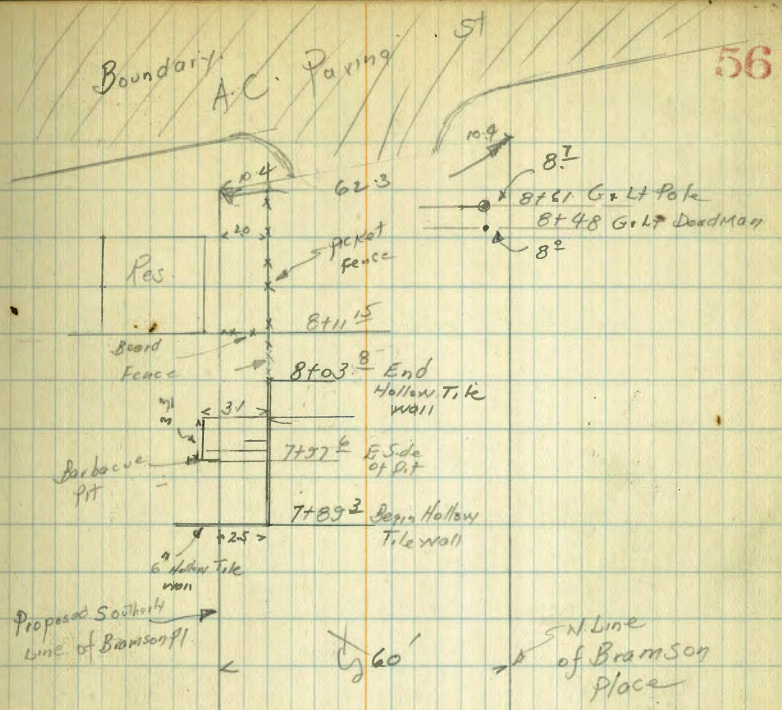 St
56
Boundary
A.C. Paving
10.9
8 7
10.4
62.3
8+61 G & Lt Pole
8+48 G & Lt DeadMan
8 0
2.0
Picket
Fence
Res.
8+11 15
Board
Fence
8+03 8 End
Hollow Tile
wall
3.1
7+97 6 E Side
of Pit
Barbacue
Pit
7+89 3 Begin Hollow
Tile wall
2.5
6" Hollow Tile
wall
Proposed Southerly
Line of Bramson Pl
60'
N Line
of Bramson
Place